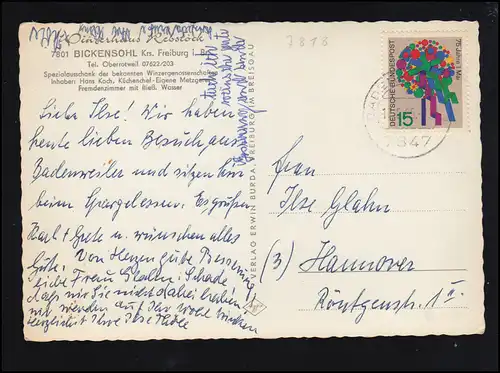 Rebstock
7801 BICKENSOHL Krs. Freiburg i. Br.
Tel. Oberrotweil 07622/203
Spezialausschank der bekannten Winzergenossenschaft
Inhaber: Hans Koch, Küchenchef - Eigene Metzgerei
Fremdenzimmer mit fließ. Wasser
Liebe Ilse! Wir haben
heute lieben Besuch aus
Badenweiler und sitzen hier
beim Spargelessen. Es grüßen
Karl + Grete u. wünschen alles
Gute.
Von Herzen gute Besserung,
liebe Frau Glahn. Schade,
daß wir Sie nicht dabei haben,
wir werden auf Ihr Wohl trinken
Herzlichst Ihre Ilse
VERLAG ERWIN BURDA, FREIBURG IM BREISGAU
7818
DEUTSCHE BUNDESPOST
75 Jahre 1. Mai
15
7847
Frau
Ilse Glahn
(3) Hannover
Röntgenstr. 1